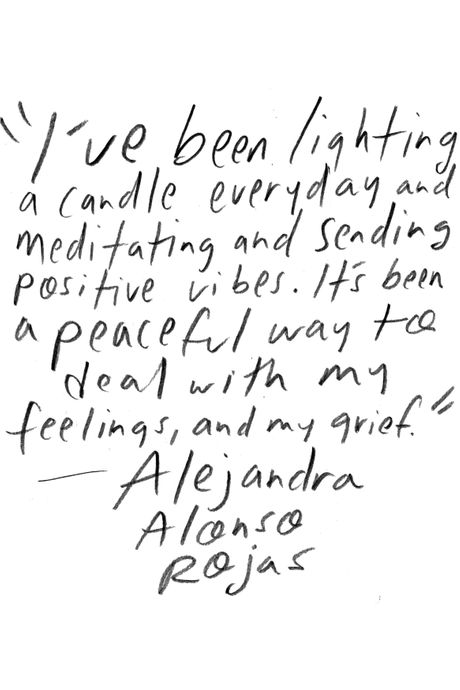 "I've been lighting
a candle everyday and
meditating and sending
positive vibes. It's been
a peaceful way to
deal with my
feelings, and my grief."
— Alejandra
Alonso
Rojas